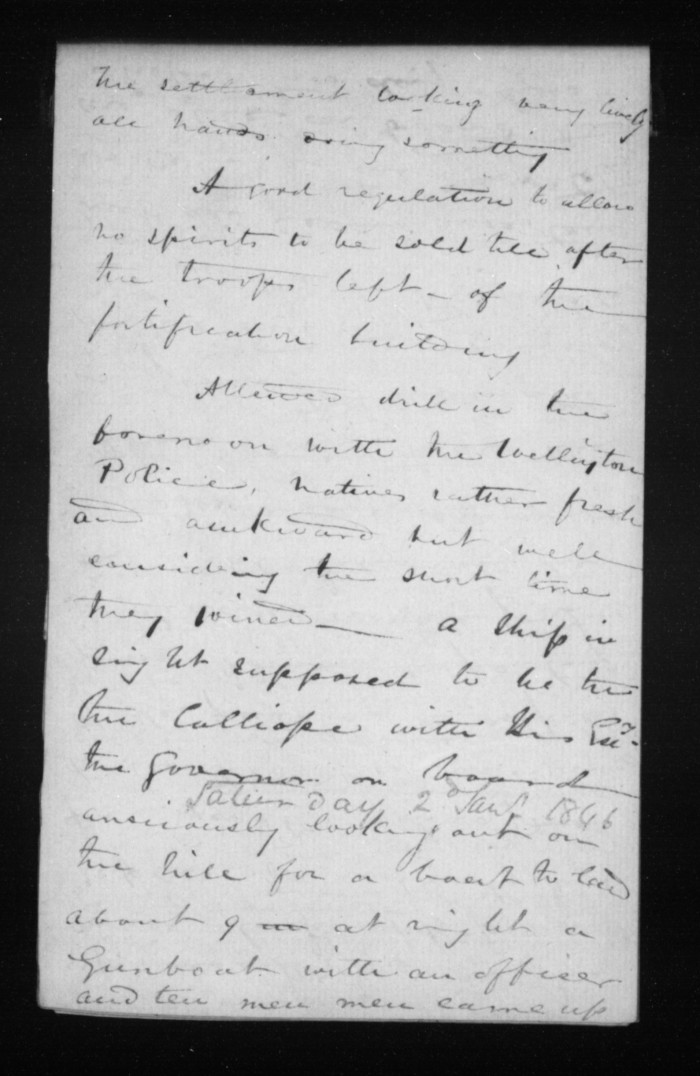 the settlement looking very lively
all hands doing something
A good regulation to allow
no spirits to be sold till after
the troops left - of the
fortification building
Attended drill in the
forenoon with the Wellington
Police, natives rather fresh
and awkward but well
considering the short time
they joined — a ship in
sight supposed to be the
the Calliope with His Exy.
the Governor on board
Saturday 2 Jany 1846
anxiously looking out on
the hill for a boat to land
about 9 at night a
Gunboat with an officer
and ten men men came up